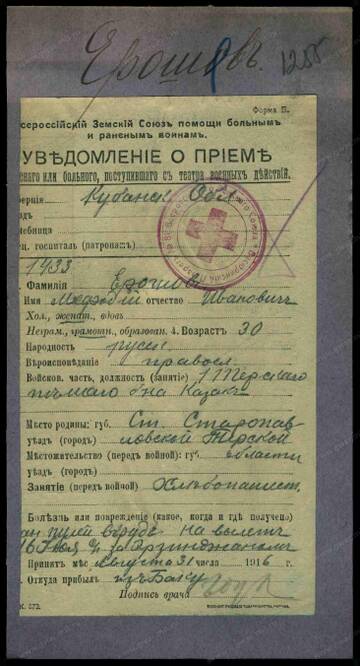 Ерошовъ. 1255
Форма П.
сероссійскій Земскій Союзъ помощи больнымъ
и раненымъ воинамъ.
УВѢДОМЛЕНІЕ О ПРІЕМѢ
енаго или больного, поступившаго съ театра военныхъ дѣйствій.
ернія Кубанск. Обл.
здъ
чебница
ец. госпиталь (патронатъ)
1433
Фамилія Ерошовъ
Имя Меѳодій отчество Ивановичъ
Хол., женат., вдовъ
Неграм., грамотн., образован. 4. Возрастъ 30
Народность русск.
Вѣроисповѣданіе правосл.
Войсков. часть, должность (занятіе) 1 Терскаго
б-на Казакъ
Мѣсто родины: губ. Ст. Старопав-
уѣздъ (городъ) ловской Терской
Мѣстожительство (передъ войной): губ. области
уѣздъ (городъ)
Занятіе (передъ войной) Хлѣбопашест.
Болѣзнь или поврежденіе (какое, когда и гдѣ получено)
пулей въ груде на вылетъ
Эрзинджаномъ
Принятъ мѣс. Августа 31 числа 1916 г.
Откуда прибылъ изъ Баку
Подпись врача
К. 572.